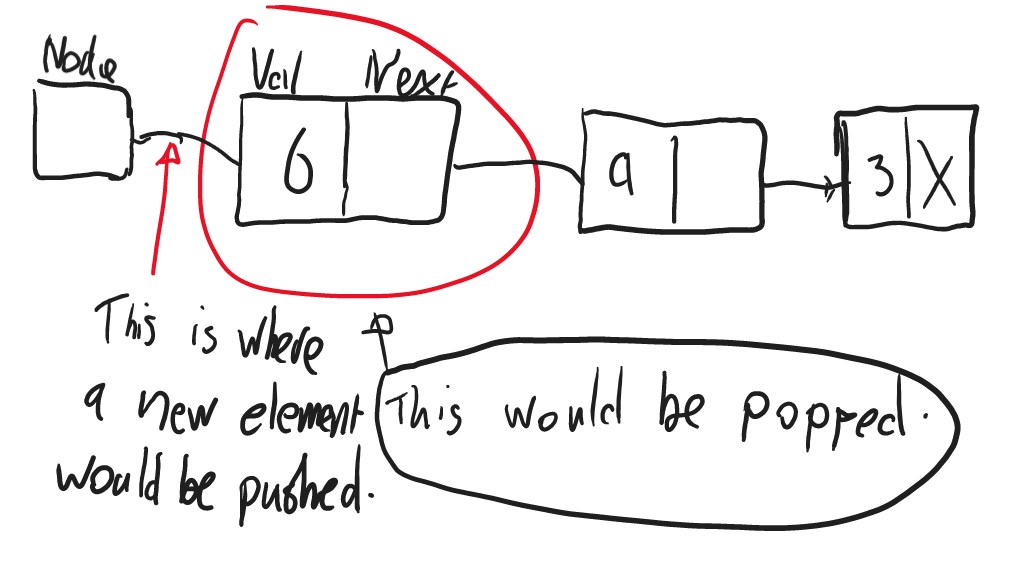 Node
Val Next
6
9
3 X
This is where
a new element
would be pushed.
This would be popped.